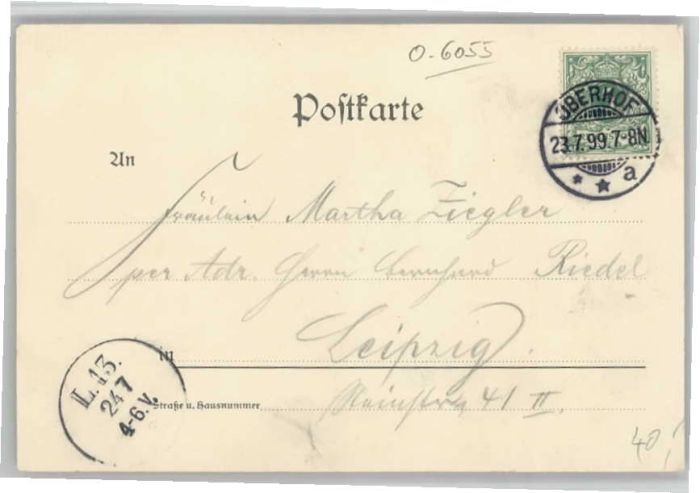 O-6055
Postkarte
OBERHOF
23.7.99.7-8N
a
An
Fräulein Martha Ziegler
per Adr. Herrn Bernhard Riedel
in Leipzig.
Straße u. Hausnummer 41 II.
L.13.
24 7
4-6.V.
40,